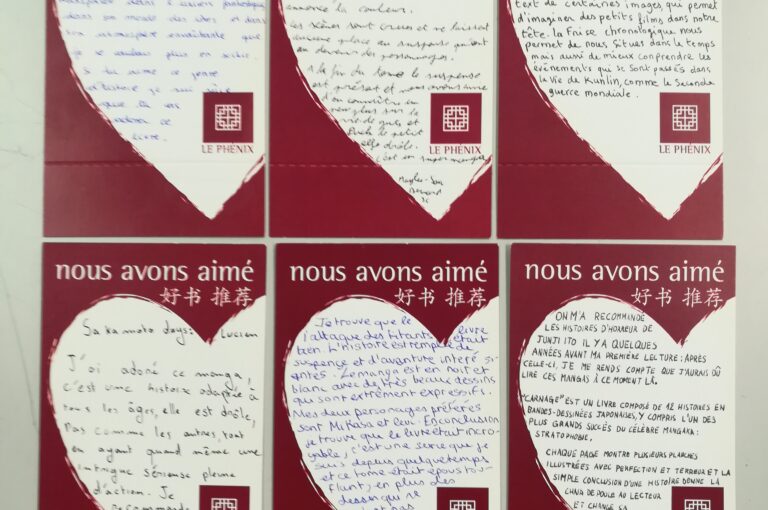 dans son monde des ... et dans
son atmosphère envoûtante que
je voulais plus en sortir.
Si tu aime ce genre
d'histoire je suis sûre
que tu vas
adorer ce
livre.
LE PHÉNIX
annonce la couleur.
Les scènes sont crues et ne laissent
aucune place au suspense quant
au devenir des personnages.
A la fin du tome le suspense
est présent et nous avons envie
d'en connaître un
peu plus sur la
vie de guts et
Puck le petit
elfe drôle.
C'est un super manga
LE PHÉNIX
text de certaines images qui permet
d'imaginer des petits films dans notre
tête. La frise chronologique nous
permet de nous situes dans le temps
mais aussi de mieux comprendre les
évènements qui se sont passés dans
la vie de Kunlin, comme le Seconde
guerre mondiale.
LE PHÉNIX
nous avons aimé
好书 推荐
Sakamoto days: Lucien
J'ai adoré ce manga,
c'est une histoire adaptée à
tous les âges, elle est drôle,
pas comme les autres, tout
en ayant quand même une
intrigue sérieuse pleine
d'action. Je
recommande
nous avons aimé
好书 推荐
Je trouve que le livre
l'attaque des titants était
bien. L'histoire est remplie de
suspence et d'avanture
Le manga est en noir et
blanc avec de très beaux dessins
qui sont extrêment expressifs.
Mes deux personages préférés
sont Mikasa et Levi. En conclusion
je trouve que le livre était incro-
yable, c'est une serie que je
suis depuis quelque temps
et ce tome était époustou-
flant, en plus des
dessin qui ne
pas
nous avons aimé
好书 推荐
ON M'A RECOMMANDÉ
LES HISTOIRES D'HORREUR DE
JUNJI ITO IL Y A QUELQUES
ANNÉES AVANT MA PREMIÈRE LECTURE : APRÈS
CELLE-LÀ, JE ME RENDS COMPTE QUE J'AURAIS DÛ
LIRE CES MANGAS À CE MOMENT LÀ.
"CARNAGE" EST UN LIVRE COMPOSÉ DE 12 HISTOIRES EN
BANDES-DESSINÉES JAPONAISES, Y COMPRIS L'UN DES
PLUS GRANDS SUCCÈS DU CÉLÈBRE MANGAKA :
STRATOPHOBIE.
CHAQUE PAGE MONTRE PLUSIEURS PLANCHES
ILLUSTRÉES AVEC PERFECTION ET TERREUR ET LA
SIMPLE CONCLUSION D'UNE HISTOIRE DONNE LA
CHAIR DE POULE AU LECTEUR
ET CHANGE SA